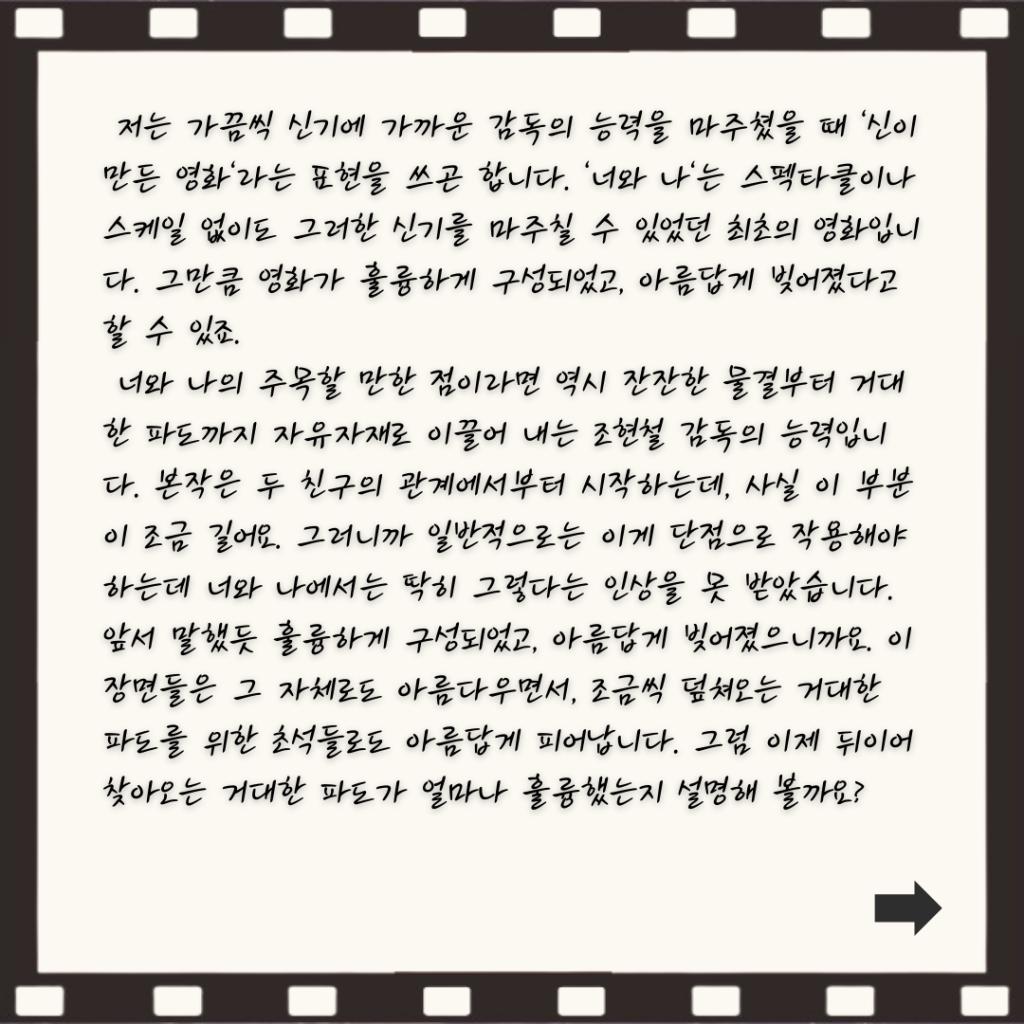 저는 가끔씩 신기에 가까운 감독의 능력을 마주쳤을 때 '신이
만든 영화'라는 표현을 쓰곤 합니다. '너와 나'는 스펙타클이나
스케일 없이도 그러한 신기를 마주칠 수 있었던 최초의 영화입니
다. 그만큼 영화가 훌륭하게 구성되었고, 아름답게 빚어졌다고
할 수 있죠.
너와 나의 주목할 만한 점이라면 역시 잔잔한 물결부터 거대
한 파도까지 자유자재로 이끌어 내는 조현철 감독의 능력입니
다. 본작은 두 친구의 관계에서부터 시작하는데, 사실 이 부분
이 조금 길어요. 그러니까 일반적으로는 이게 단점으로 작용해야
하는데 너와 나에서는 딱히 그렇다는 인상을 못 받았습니다.
앞서 말했듯 훌륭하게 구성되었고, 아름답게 빚어졌으니까요. 이
장면들은 그 자체로도 아름다우면서, 조금씩 덮쳐오는 거대한
파도를 위한 초석들로도 아름답게 피어납니다. 그럼 이제 뒤이어
찾아오는 거대한 파도가 얼마나 훌륭했는지 설명해 볼까요?